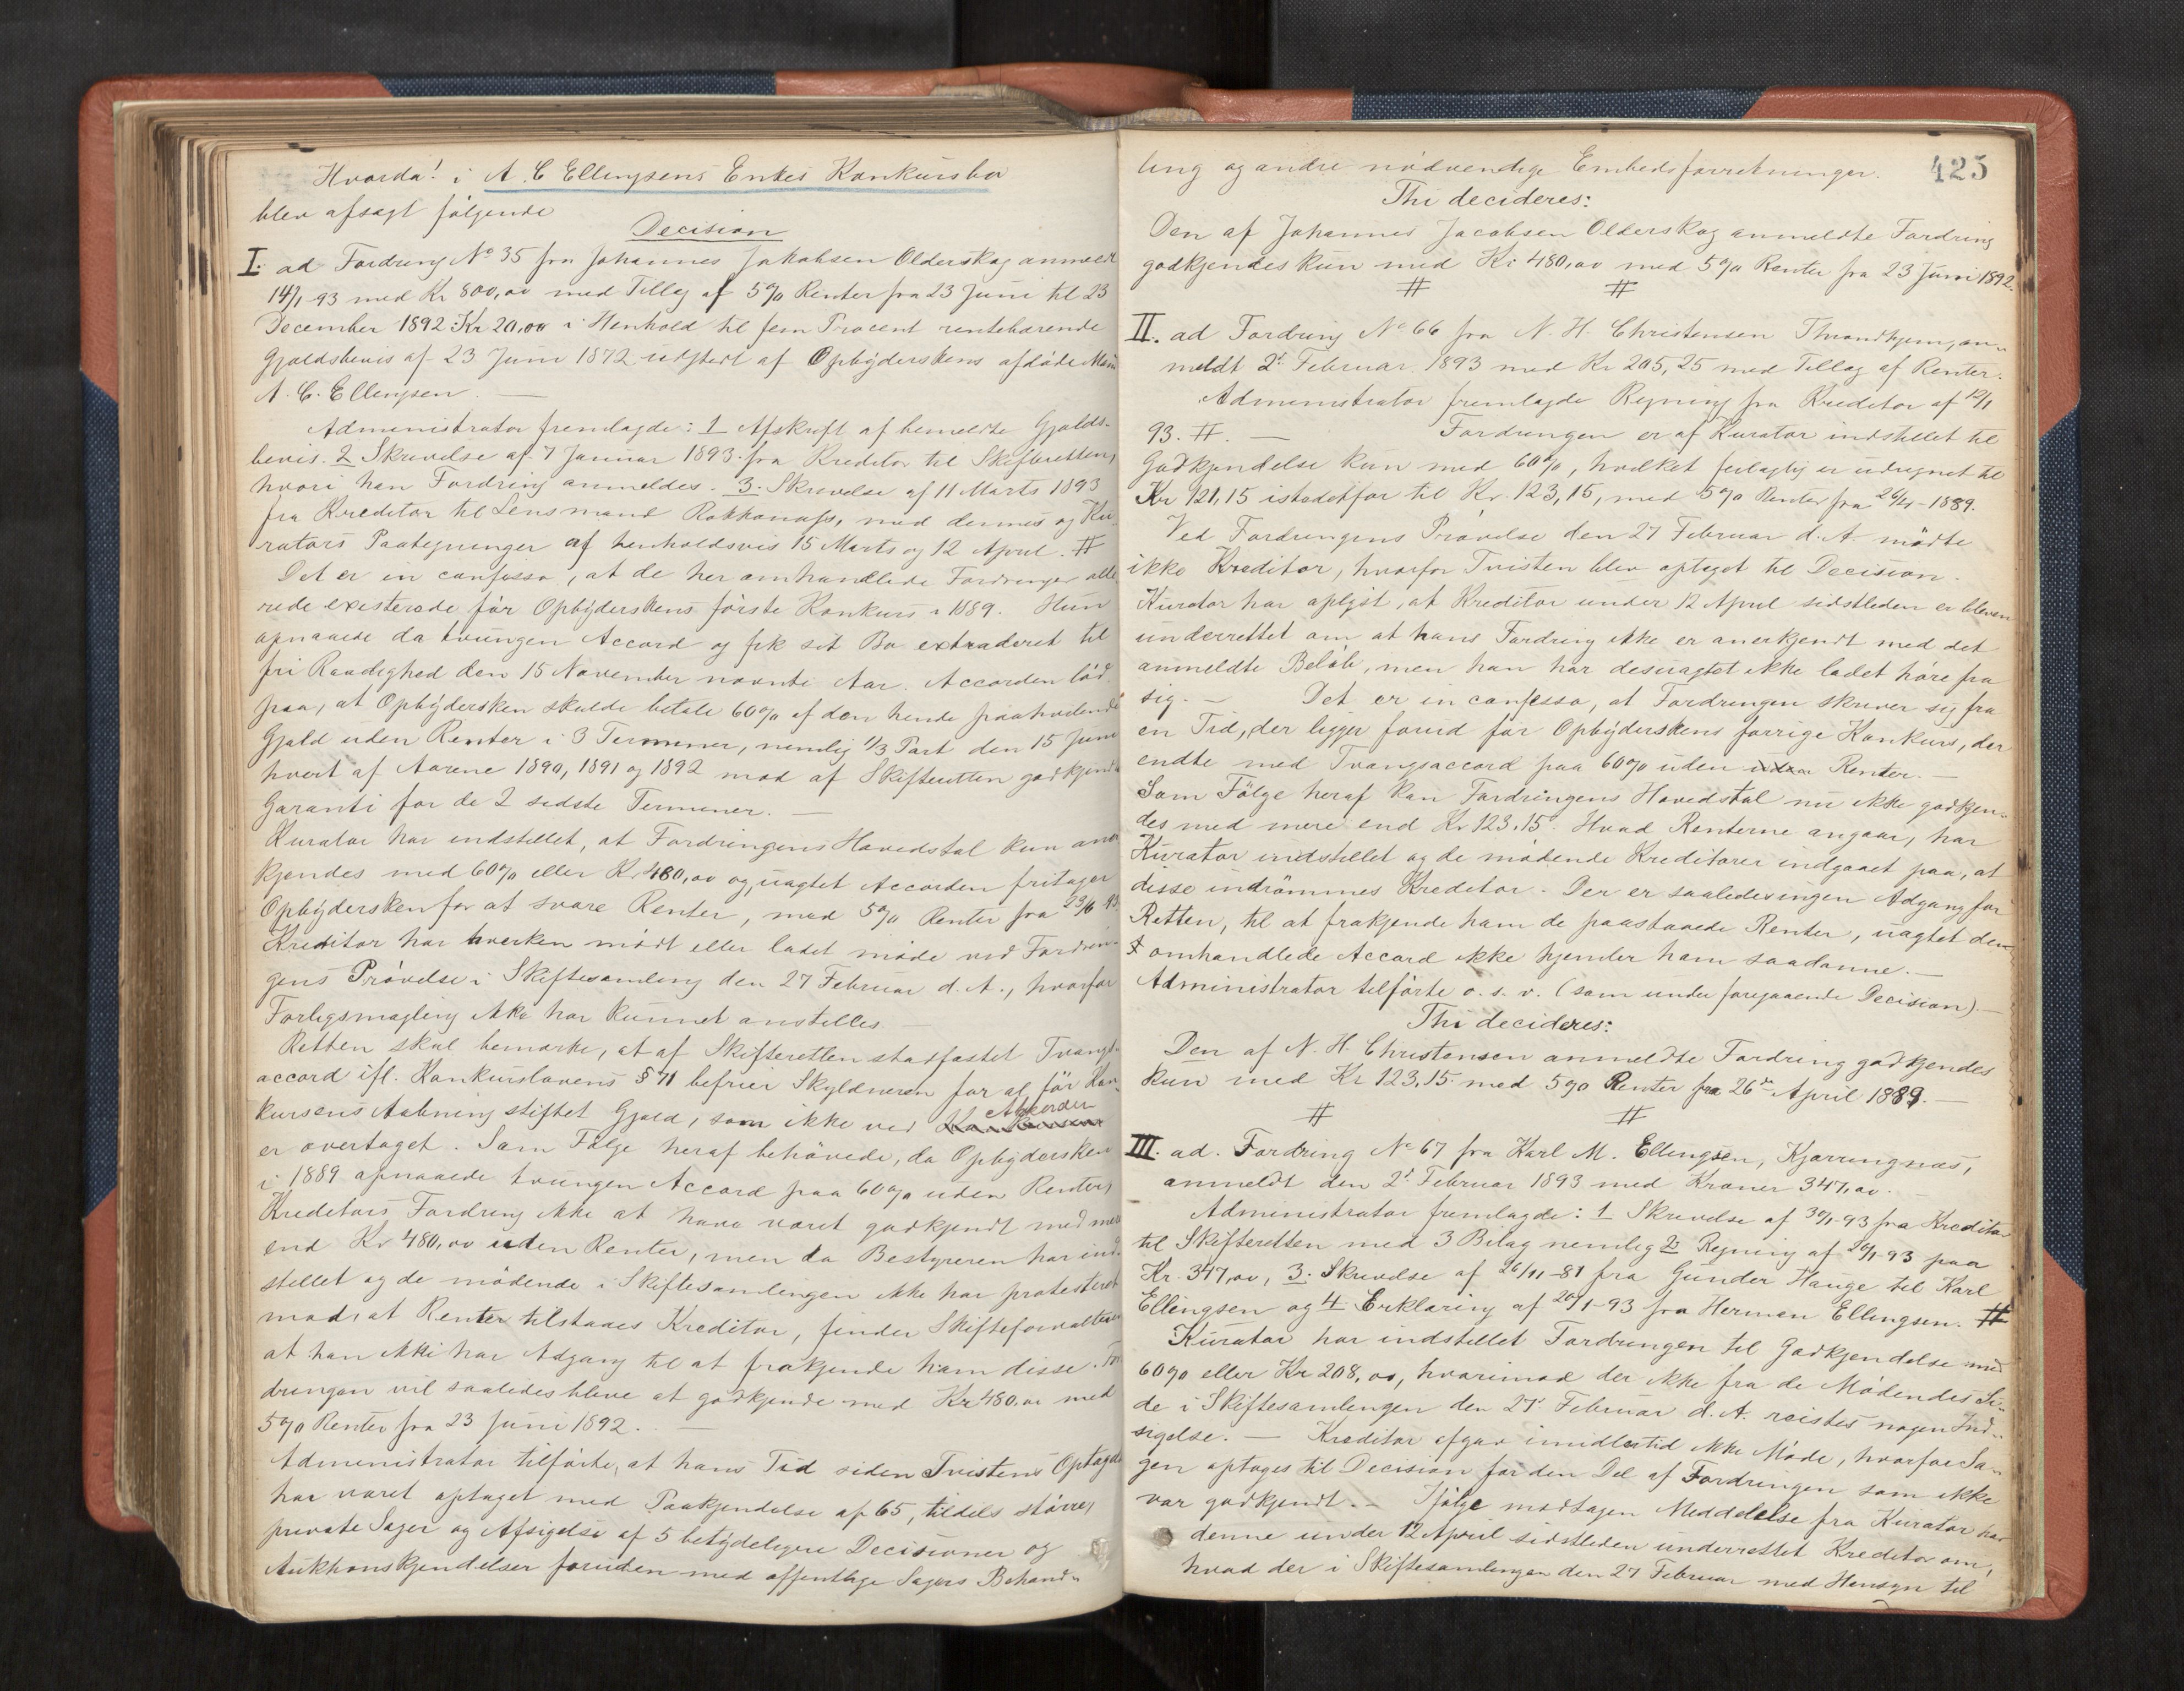 Hvorda! i A. C Ellingsens Enkes Konkursbo
blev afsagt følgende
Decision
I. ad Fordring No 35 fra Johannes Jakobsen Olderskog anmeldt
14/1-93 med Kr 800,00 med Tillæg af 5% Renter fra 23 Juni til 23
December 1892 Kr 20,00 i Henhold til fem Procent rentebærende
Gjældsbevis af 23 Juni 1872 udstedt af Opbyderskens afdøde Mand
A. C. Ellingsen. —
Administrator fremlagde: 1 Afskrift af bemeldte Gjælds-
bevis. 2 Skrivelse af 7 Januar 1893 fra Kreditor til Skifteretten,
hvori han Fordring anmeldes. 3. Skrivelse af 11 Marts 1893
fra Kreditor til Lensmand med dennes og Ku-
rators Paategninger af henholdsvis 15 Marts og 12 April. #
Det er in confesso, at de her omhandlede Fordringer alle
rede existerede før Opbyderskens første Konkurs i 1889. Hun
opnaaede da tvungen Accord og fik sit Bo extraderet til
fri Raadighed den 15 November nævnte Aar. Accorden lød
paa, at Opbydersken skulde betale 60% af den hende paahvilende
Gjæld uden Renter i 3 Terminer, nemlig 1/3 Part den 15 Juni
hvert af Aarene 1890, 1891 og 1892 mod af Skifteretten godkjendt
Garanti for de 2 sidste Terminer. —
Kurator har indstillet, at Fordringens Hovedstol kun aner
kjendes med 60% eller Kr 480,00 og, uagtet Accorden fritager
Opbydersken for at svare Renter, med 5% Renter fra 23/6 93
Kreditor har hverken mødt eller ladet møde ved Fordrin-
gens Prøvelse i Skiftesamling den 27 Februar d. A., hvorfor
Forligsmægling ikke har kunnet anstilles. —
Retten skal bemærke, at af Skifteretten stadfæstet Tvangs-
accord ifl. Konkurslovens § 71 befrier Skyldneren for al før Kon-
kursens Aabning stiftet Gjæld, som ikke ved Accorden
er overtaget. Som Følge heraf behøvede, da Opbydersken
i 1889 opnaaede tvungen Accord paa 60% uden Renter,
Kreditors Fordring ikke at have været godkjendt med mere
end Kr 480,00 uden Renter, men da Bestyreren har ind-
stillet og de mødende i Skiftesamlingen ikke har protesteret
mod, at Renter tilstaaes Kreditor, finder Skifteforvalteren
at han ikke har Adgang til at frakjende ham disse. For
dringen vil saaledes blive at godkjende med Kr 480,00 med
5% Renter fra 23 Juni 1892. —
Administrator tilførte, at hans Tid siden Tvistens Optagelse
har været optaget med Paakjendelse af 65, tildels større,
private Sager og Afsigelse af 5 betydeligere Decisioner og
Auktionskjendelser foruden med offentlige Sagers Behand-
423
ling og andre nødvendige Embedsforretninger.
Thi decideres:
Den af Johannes Jacobsen Olderskog anmeldte Fordring
godkjendes kun med Kr 480,00 med 5% Renter fra 23 Juni 1892.
# #
II. ad Fordring No 66 fra N. H. Christensen Throndhjem, an-
meldt 2d Februar 1893 med Kr 205,25 med Tillæg af Renter.
Administrator fremlagde Regning fra Kreditor af 12/1
93. #. — Fordringen er af Kurator indstillet til
Godkjendelse kun med 60%, hvilket feilagtig er udregnet til
Kr 121,15 istedetfor til Kr. 123,15, med 5% Renter fra 26/4-1889.
Ved Fordringens Prøvelse den 27 Februar d. A. mødte
ikke Kreditor, hvorfor Tvisten blev optaget til Decision.
Kurator har oplyst, at Kreditor under 12 April sidstleden er bleven
underrettet om at hans Fordring ikke er anerkjendt med det
anmeldte Beløb, men han har desuagtet ikke ladet høre fra
sig. — Det er in confesso, at Fordringen skriver sig fra
en Tid, der ligger forud for Opbyderskens forrige Konkurs, der
endte med Tvangsaccord paa 60% uden Renter. —
Som Følge heraf kan Fordringens Hovedstol nu ikke godkjen-
des med mere end Kr 123,15. Hvad Renterne angaar, har
Kurator indstillet og de mødende Kreditorer indgaaet paa, at
disse indrømmes Kreditor. Der er saaledes ingen Adgang for
Retten, til at frakjende ham de paastaaede Renter, uagtet den
omhandlede Accord ikke hjemler ham saadanne. —
Administrator tilførte o. s. v. (som under foregaaende Decision). —
Thi decideres:
Den af N. H. Christensen anmeldte Fordring godkjendes
kun med Kr 123,15 med 5% Renter fra 26de April 1889. —
# #
III. ad. Fordring No 67 fra Karl M. Ellingsen, Kjærringnæs,
anmeldt den 2d Februar 1893 med Kroner 347,00. —
Administrator fremlagde: 1 Skrivelse af 30/1-93 fra Kreditor
til Skifteretten med 3 Bilag nemlig 2. Regning af 20/1-93 paa
Kr. 347,00, 3. Skrivelse af 26/11-81 fra Gunder Hauge til Karl
Ellingsen og 4. Erklæring af 20/1-93 fra Herman Ellingsen. #
Kurator har indstillet Fordringen til Godkjendelse med
60% eller Kr 208,00, hvorimod der ikke fra de Mødendes Si-
de i Skiftesamlingen den 27 Februar d. A. reistes nogen Ind-
sigelse. — Kreditor afgav imidlertid ikke Møde, hvorfor Sa-
gen optoges til Decision for den Del af Fordringen som ikke
var godkjendt. — Ifølge modtagen Meddelelse fra Kurator har
denne under 12 April sidstleden underrettet Kreditor om,
hvad der i Skiftesamlingen den 27 Februar med Hensyn til